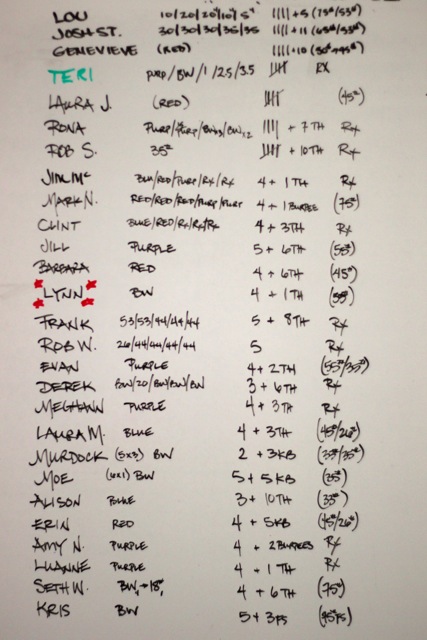 LOU 10/20/20#/10#/5# |||| + 5 (75#/53#)
JOSH ST. 30/30/30/35/35 |||| + 11 (65#/53#)
GENEVIEVE (RED) |||| + 10 
TERI PURP/BW/1/2.5/3.5 Rx
LAURA J. (RED) (45#)
RONA + 7TH Rx
ROB S. 35# + 10TH Rx
JIM Mc BLU/RED/PURP/Rx/Rx 4 + 1TH Rx
MARK N. RED/RED/RED/PURP/PURP 4 + 1 BURPEE (75#)
CLINT BLUE/RED/Rx/Rx/Rx 4 + 3TH Rx
JILL PURPLE 5 + 6TH (53#)
BARBARA RED 4 + 6TH (45#)
LYNN BW 4 + 1TH
FRANK 53/53/44/44/44 5 + 8TH Rx
ROB W. 26/44/44/44/44 5 Rx
EVAN PURPLE 4 + 2TH (55#/35#)
DEREK BW/20/BW/BW/BW 3 + 6TH Rx
MEGHANN PURPLE 4 + 3TH Rx
LAURA M. BLUE 4 + 3TH (45#/26#)
MURDOCK (5x3) BW 2 + 3KB (35#/35#)
MOE (6x1) BW 5 + 5KB (35#)
ALISON BLUE 3 + 10TH (33#)
ERIN RED 4 + 5KB (45#/26#)
AMY N. PURPLE 4 + 2 BURPEES Rx
LUANNE PURPLE 4 + 1TH Rx
SETH W. BW, → 18", 4 + 6TH (75#)
KRIS BW 5 + 3PS (45PS)